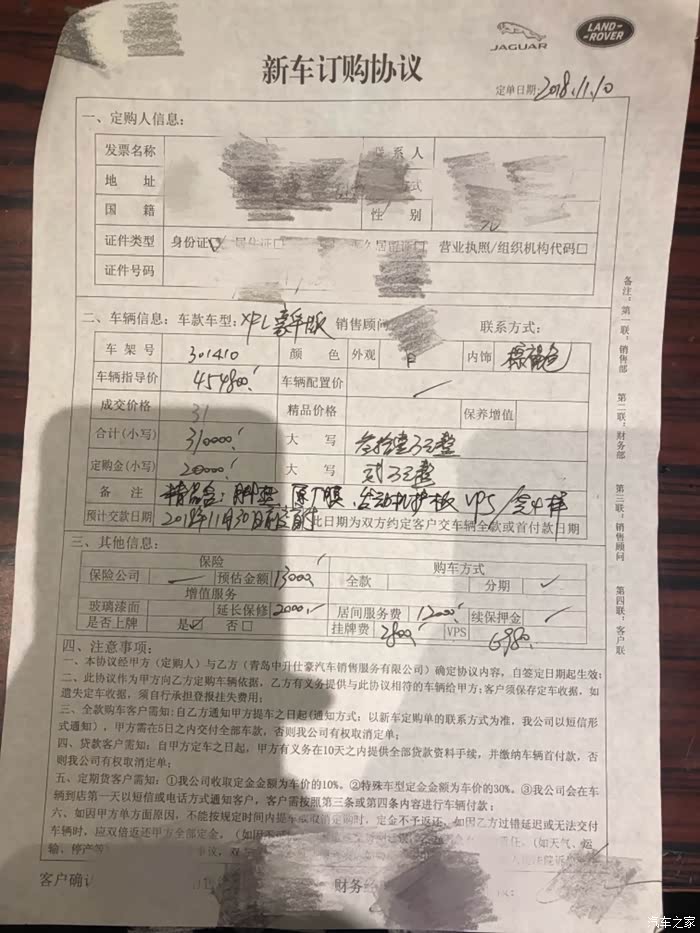 JAGUAR
LAND-ROVER
新车订购协议
定单日期: 2018.11.10
一、定购人信息:
发票名称 联系人
地 址 方式
国 籍 性 别
证件类型 身份证☑ 居住证□ 永久居留证□ 营业执照/组织机构代码□
证件号码
二、车辆信息: 车款车型: XFL豪华版 销售顾问 联系方式:
车 架 号 301410 颜 色 外观 白 内饰 棕褐色
车辆指导价 454800 车辆配置价 ✓
成交价格 31 精品价格 保养增值
合计(小写) 310000 大 写 叁拾壹万元整
定购金(小写) 20000 大 写 贰万元整
备 注 精品含: 脚垫 原厂膜 发动机护板 VPS/含4样
预计交款日期 2018年11月30日前 此日期为双方约定客户交车辆全款或首付款日期
三、其他信息:
保险 购车方式
保险公司 预估金额 13000 全款 分期 ✓
增值服务
玻璃漆面 延长保修 2000 居间服务费 12000 续保押金 ✓
是否上牌 是☑ 否□ 挂牌费 2800 VPS 6980
四、注意事项:
一、本协议经甲方(定购人)与乙方(青岛中升仕豪汽车销售服务有限公司)确定协议内容,自签定日期起生效;
二、此协议作为甲方向乙方定购车辆依据,乙方有义务提供与此协议相符的车辆给甲方;客户须保存定车收据,如
遗失定车收据,须自行承担登报挂失费用;
三、全款购车客户需知:自乙方通知甲方提车之日起(通知方式:以新车定购单的联系方式为准,我公司以短信形
式通知),甲方需在5日之内交付全部车款,否则我公司有权取消定单;
四、贷款客户需知:自甲方定车之日起,甲方有义务在10天之内提供全部贷款资料手续,并缴纳车辆首付款,否
则我公司有权取消定单;
五、定期货客户需知:①我公司收取定金金额为车价的10%。②特殊车型定金金额为车价的30%。③我公司会在车
辆到店第一天以短信或电话方式通知客户,客户需按照第三条或第四条内容进行车辆付款;
六、如因甲方单方面原因,不能按规定时间内提车或取消定购时,定金不予返还。如因乙方过错延迟或无法交付
车辆时,应双倍返还甲方全部定金。(如因不 责任。(如天气、运
输、停产等 事议,双
客户确认 财务经
备注:第一联:销售部 第二联:财务部 第三联:销售顾问 第四联:客户联
汽车之家